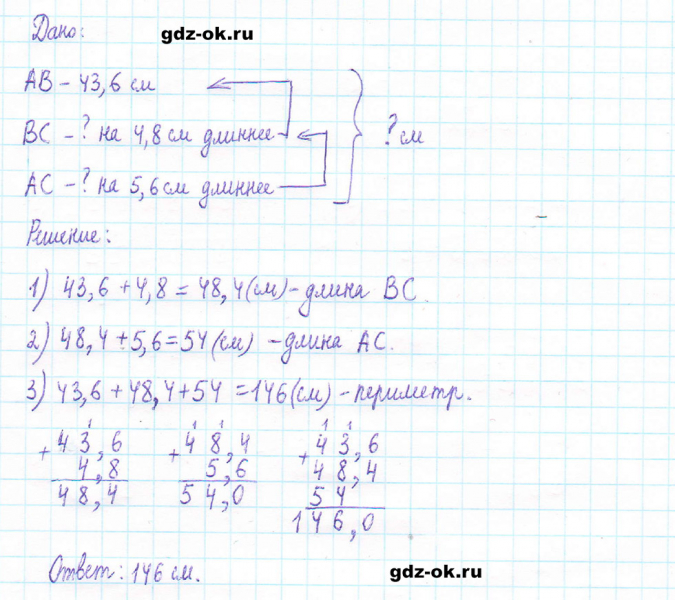 Дано: gdz-ok.ru
АВ – 43,6 см
ВС – ? на 4,8 см длиннее
? см
АС – ? на 5,6 см длиннее
Решение:
1) 43,6 + 4,8 = 48,4 (см) – длина ВС
2) 48,4 + 5,6 = 54 (см) – длина АС.
3) 43,6 + 48,4 + 54 = 146 (см) – периметр.
1 1 1 1 1
+ 43,6 + 48,4 + 43,6
4,8 5,6 48,4
48,4 54,0 54
146,0
Ответ: 146 см.
gdz-ok.ru